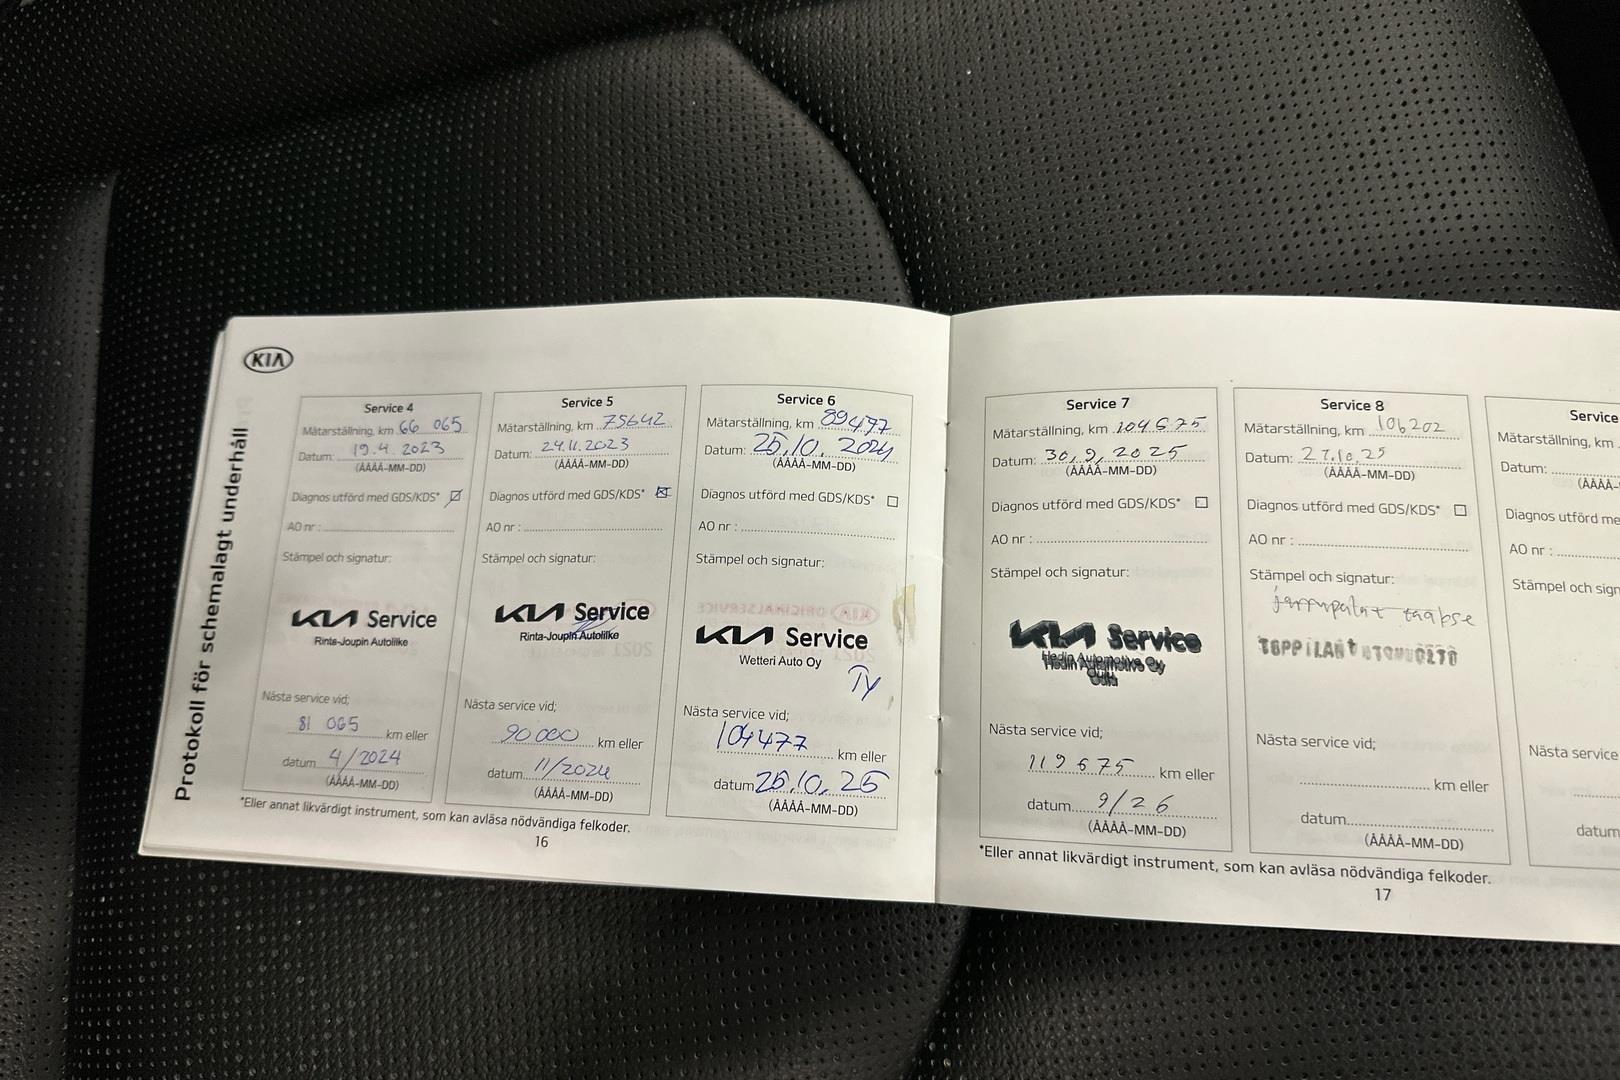 Protokoll för schemalagt underhåll
KIA
Service 4
Mätarställning, km 66 065
Datum: 19.4.2023
(ÅÅÅÅ-MM-DD)
Diagnos utförd med GDS/KDS*
AO nr :
Stämpel och signatur:
KIA Service
Rinta-Joupin Autoliike
Nästa service vid;
81 065 km eller
datum 4/2024
(ÅÅÅÅ-MM-DD)
Service 5
Mätarställning, km 75642
Datum: 24.11.2023
(ÅÅÅÅ-MM-DD)
Diagnos utförd med GDS/KDS*
AO nr :
Stämpel och signatur:
KIA Service
Rinta-Joupin Autoliike
Nästa service vid;
90 000 km eller
datum 11/2024
(ÅÅÅÅ-MM-DD)
Service 6
Mätarställning, km 89477
Datum: 25.10.2024
(ÅÅÅÅ-MM-DD)
Diagnos utförd med GDS/KDS*
AO nr :
Stämpel och signatur:
KIA Service
Wetteri Auto Oy
Ty
Nästa service vid;
104477 km eller
datum 25.10.25
(ÅÅÅÅ-MM-DD)
*Eller annat likvärdigt instrument, som kan avläsa nödvändiga felkoder.
16
Service 7
Mätarställning, km 104675
Datum: 30,9,2025
(ÅÅÅÅ-MM-DD)
Diagnos utförd med GDS/KDS*
AO nr :
Stämpel och signatur:
KIA Service
Hedin Automotive Oy
Oulu
Nästa service vid;
119675 km eller
datum 9/26
(ÅÅÅÅ-MM-DD)
Service 8
Mätarställning, km 106202
Datum: 27.10.25
(ÅÅÅÅ-MM-DD)
Diagnos utförd med GDS/KDS*
AO nr :
Stämpel och signatur:
jarrupalat taakse
Nästa service vid;
km eller
datum
(ÅÅÅÅ-MM-DD)
Service
Mätarställning, km
Datum:
(ÅÅÅÅ-
Diagnos utförd me
AO nr :
Stämpel och sign
Nästa service
datum
*Eller annat likvärdigt instrument, som kan avläsa nödvändiga felkoder.
17